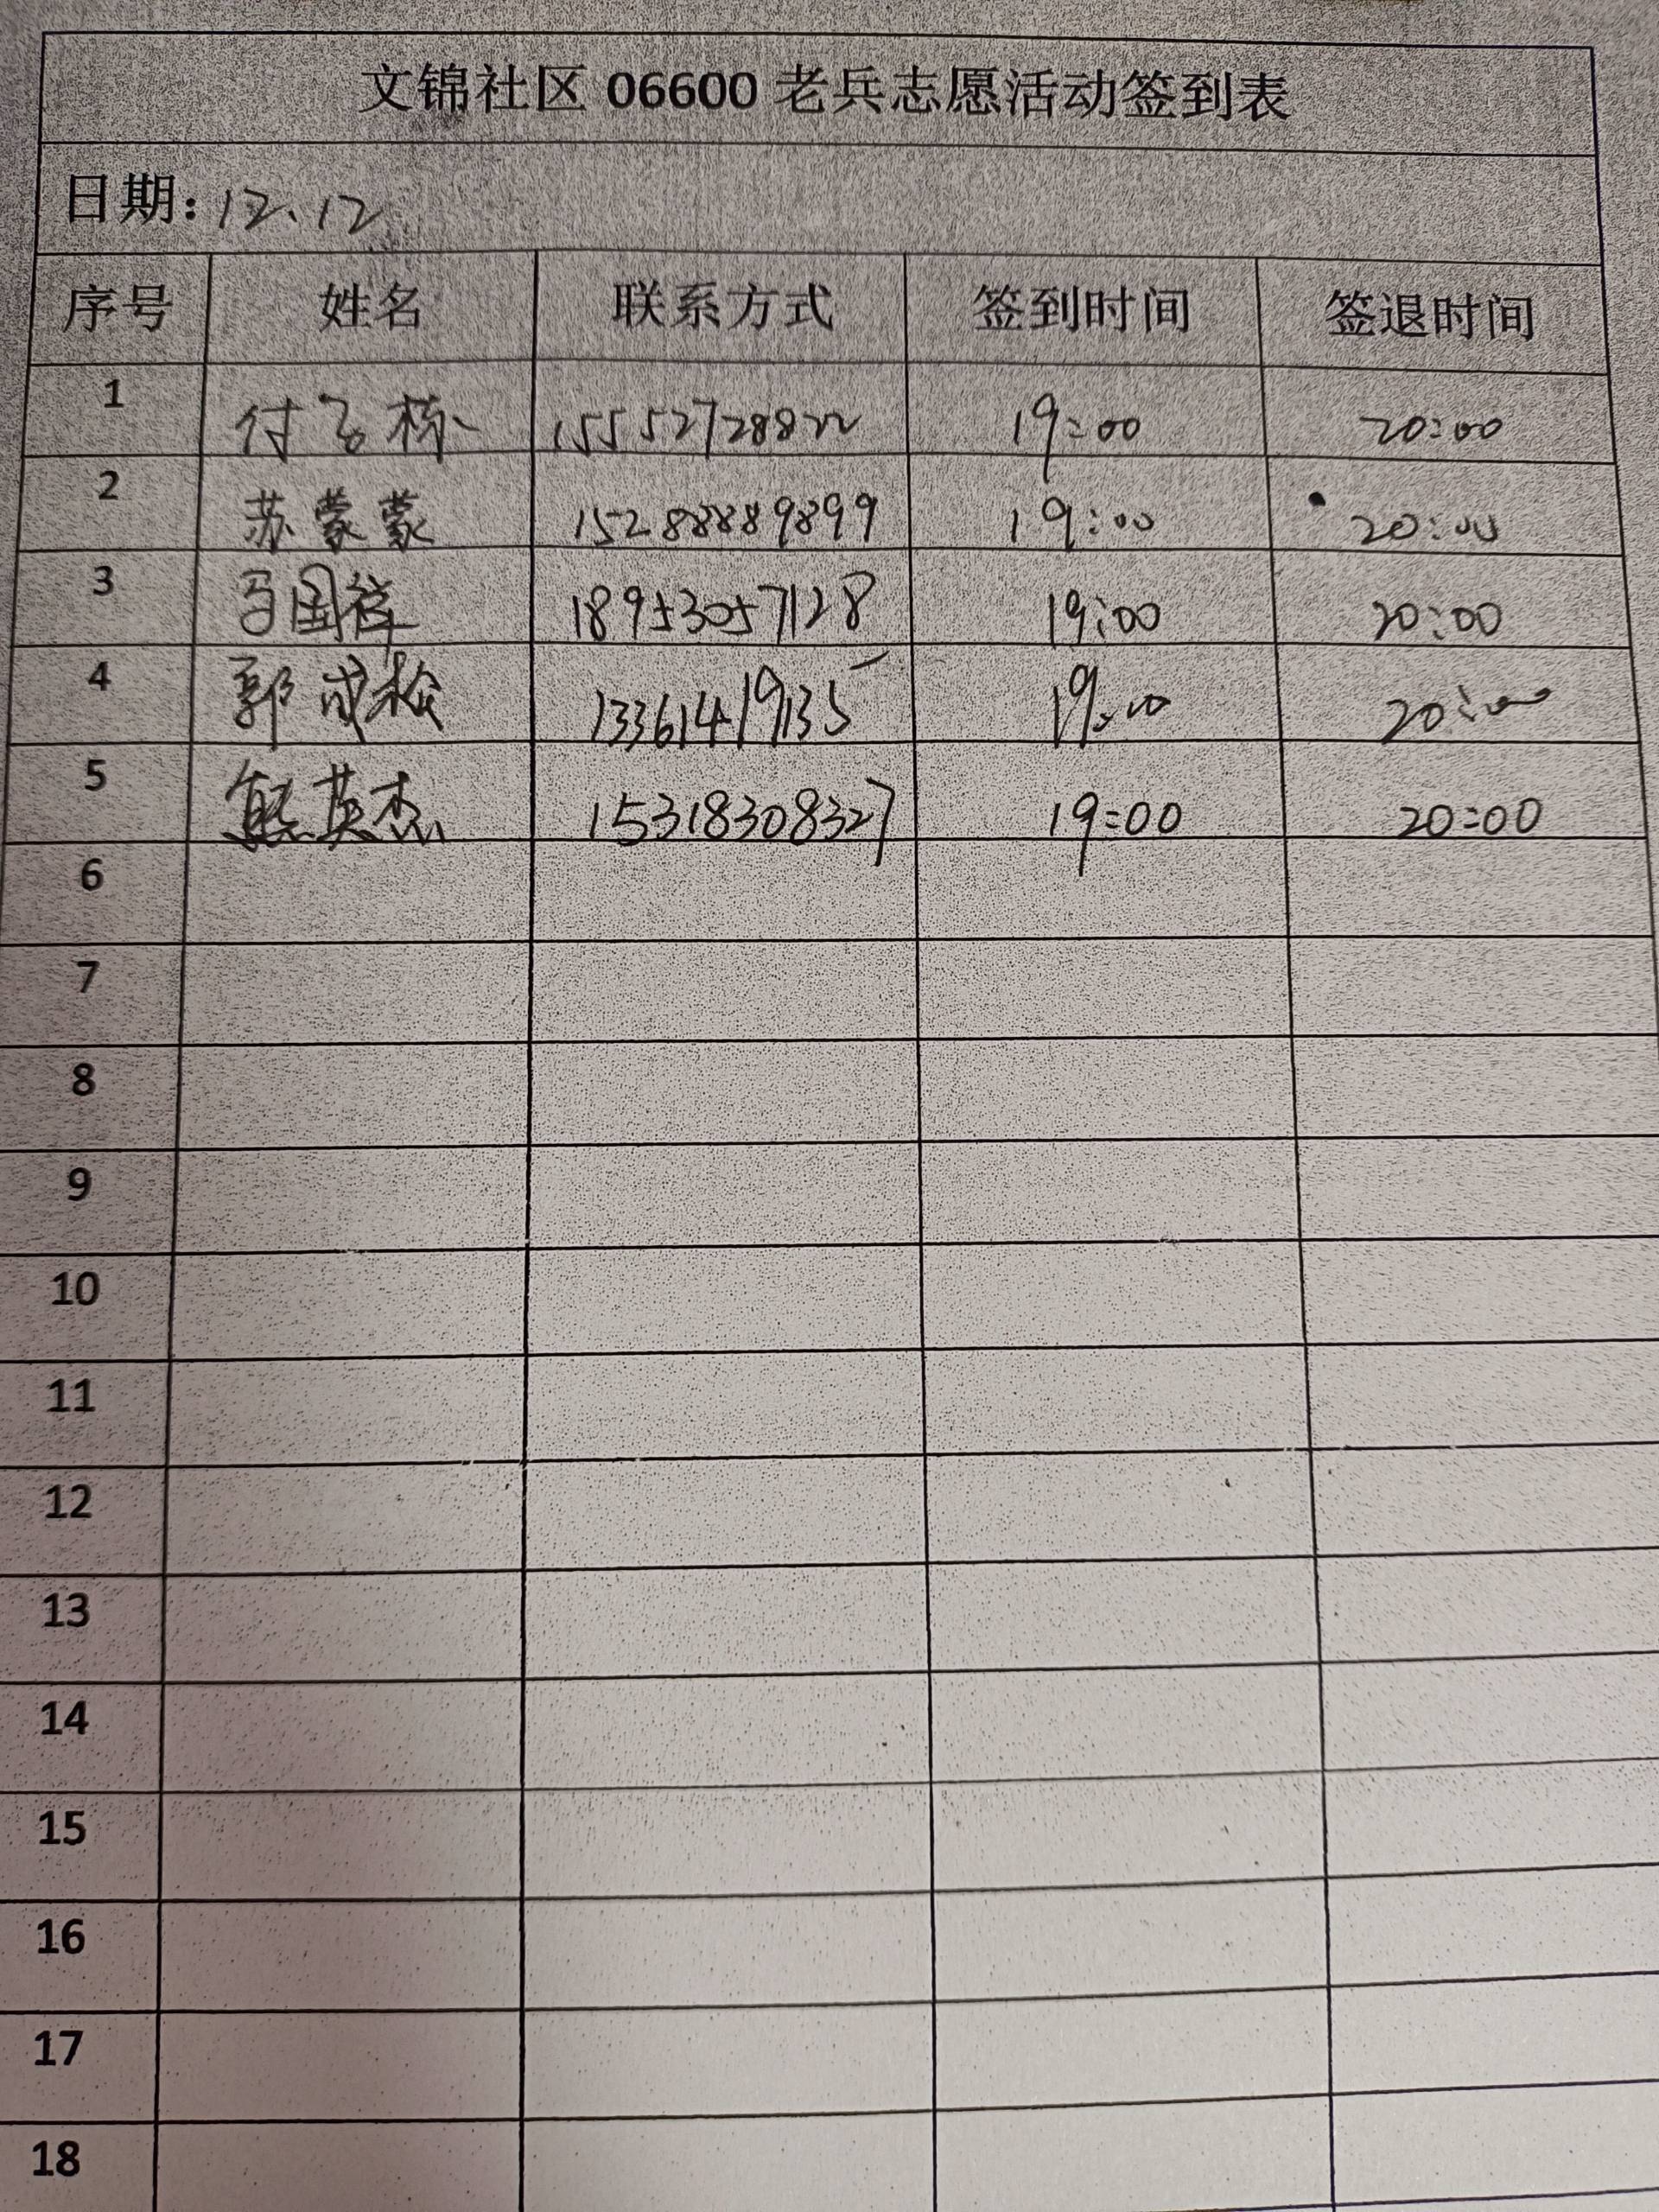 文锦社区 06600 老兵志愿活动签到表
日期: 12.12
序号 姓名 联系方式 签到时间 签退时间
1 付 栋 15552728822 19:00 20:00
2 苏蒙蒙 15288889899 19:00 20:00
3 马国祥 18953057128 19:00 20:00
4 郭成松 13361419135 19:00 20:00
5 熊英杰 15318308327 19:00 20:00
6
7
8
9
10
11
12
13
14
15
16
17
18